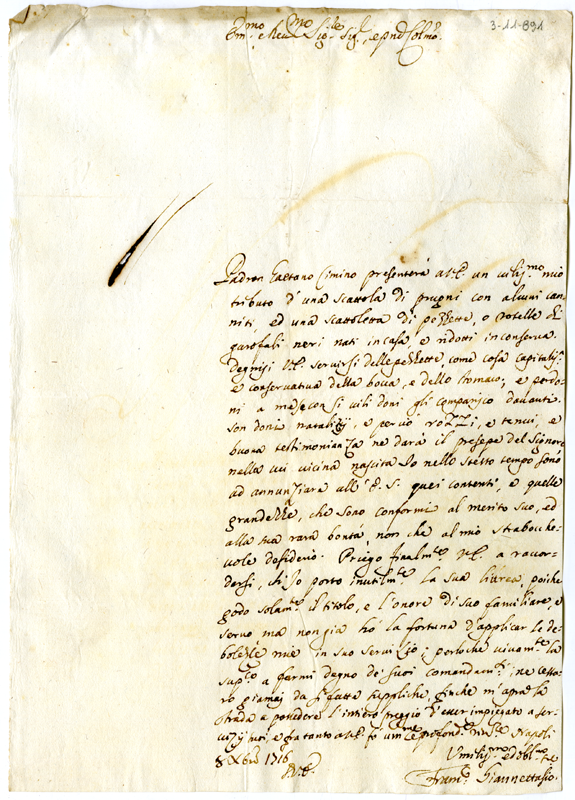 3-11-891
Em.mo e Rev.mo Sig.re Sig.re, e pñd Colmo.
Padron Gaetano Cimino presenterà a V.E. un umiliss.mo mio
tributo d'una scattola di prugni con alcuni can-
niti, ed una scattoletta di pezzette, o rotelle di
garofali neri nati in casa, e ridotti in conserva.
Degnisi V.E. servirsi delle pezzette, come cosa
e conservativa della bocca, e dello stomaco; e perdo-
ni a me se con sì vili doni gli comparisco davanti.
son doni natalizij, e perciò rozzi, e tenui, e
buona testimonianza ne darà il presepe del Signore
nella cui vicina nascita Io nello stesso tempo sono
ad annunziare all'E.S. quei contenti, e quelle
grandezze, che sono conformi al merito suo, ed
alla sua rara bontà, non che al mio strabocche-
vole desiderio. Priego finalm.te V.E. a ricor-
darsi, ch'Io porto inutilm.te la sua livrea, poiche
godo solam.te il titolo, e l'onore di suo familiare, e
servo ma non già hò la fortuna d'applicar le de-
bolezze mie in suo servizio; perloche vivam.te la
sup.co a farmi degno de' suoi comandam.ti; ne cesse-
rò giamai da sì fatte suppliche, finche m'aprirà la
strada a possedere l'intiero preggio d'esser impiegato a ser-
vizij suoi, e fra tanto a V.E. fò um.me e profond.me riv.ze Napoli
8 Xbre 1716
D.V.E.
Umiliss.mo ed obl.mo se.re
Fran.co Giannettasio.